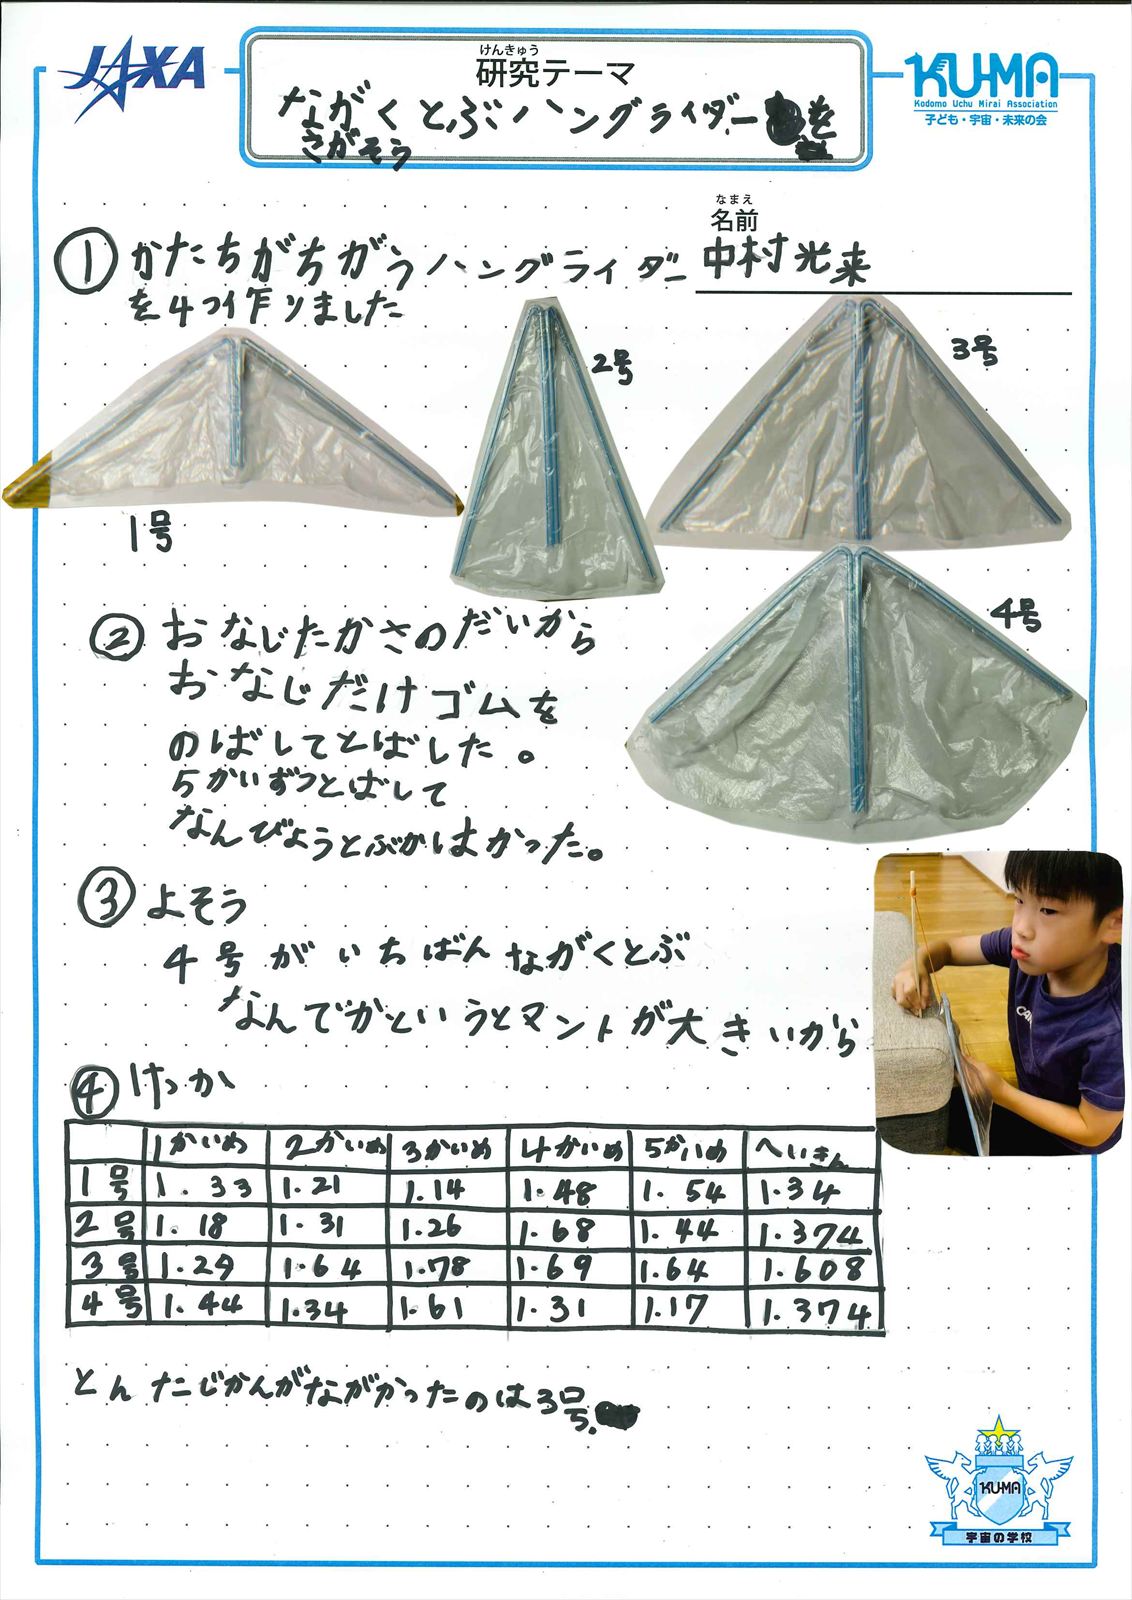 JAXA
けんきゅう
研究テーマ
ながくとぶハングライダーを
さがそう
KU-MA
Kodomo Uchu Mirai Association
子ども・宇宙・未来の会
なまえ
名前
中村光来
① かたちがちがうハングライダー
を4つ作りました
1号
2号
3号
4号
② おなじたかさのだいから
おなじだけゴムを
のばしてとばした。
5かいずつとばして
なんびょうとぶかはかった。
③ よそう
4号がいちばんながくとぶ
なんでかというとマントが大きいから
④ けっか
1かいめ 2かいめ 3かいめ 4かいめ 5かいめ へいきん
1号 1.33 1.21 1.14 1.48 1.54 1.34
2号 1.18 1.31 1.26 1.68 1.44 1.374
3号 1.29 1.64 1.78 1.69 1.64 1.608
4号 1.44 1.34 1.61 1.31 1.17 1.374
とんだじかんがながかったのは3号.
KU-MA
宇宙の学校